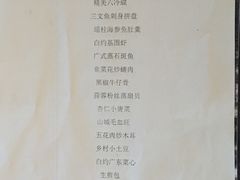 精美六冷碟
三文鱼刺身拼盘
瑶柱海参鱼肚羹
白灼基围虾
广式蒸石斑鱼
鱼菜花炒螺肉
黑椒牛仔骨
蒜蓉粉丝蒸扇贝
杏仁小唐菜
山城毛血旺
五花肉炒木耳
乡村小土豆
白灼广东菜心
生煎包